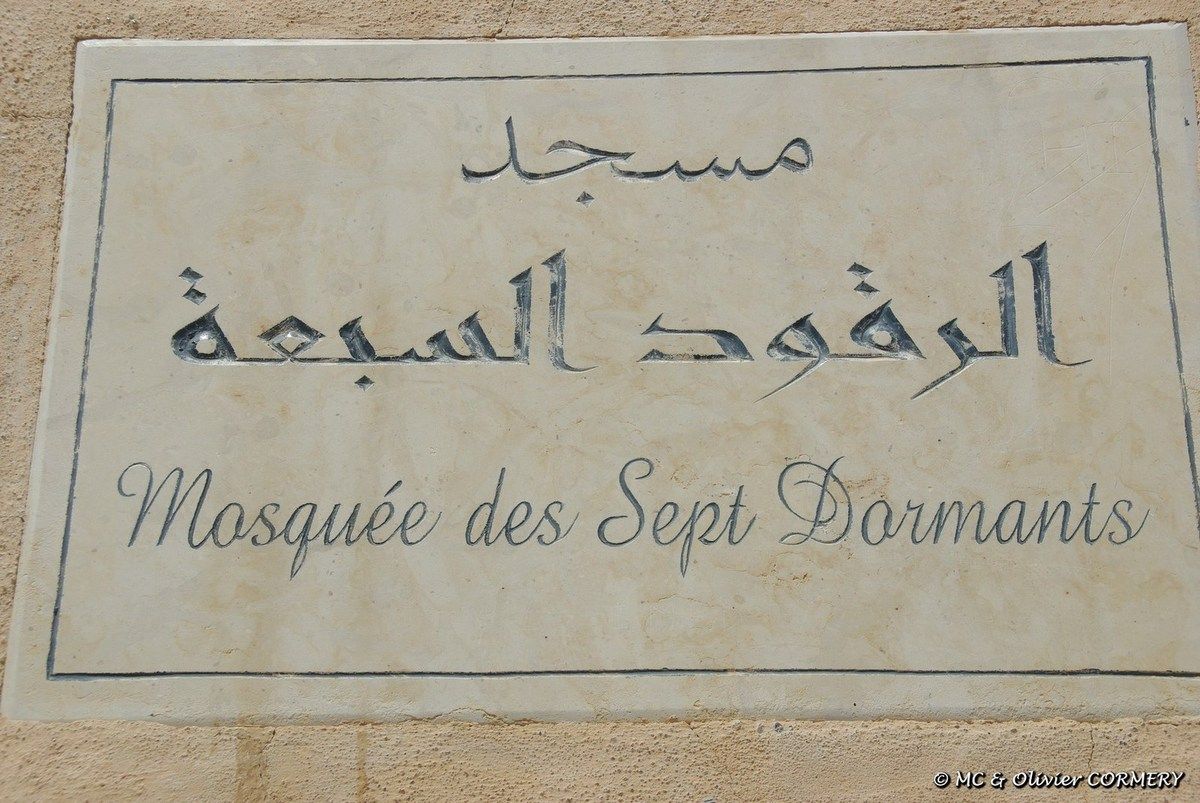 مسجد
الرقود السبعة
Mosquée des Sept Dormants
© MC & Olivier CORMERY